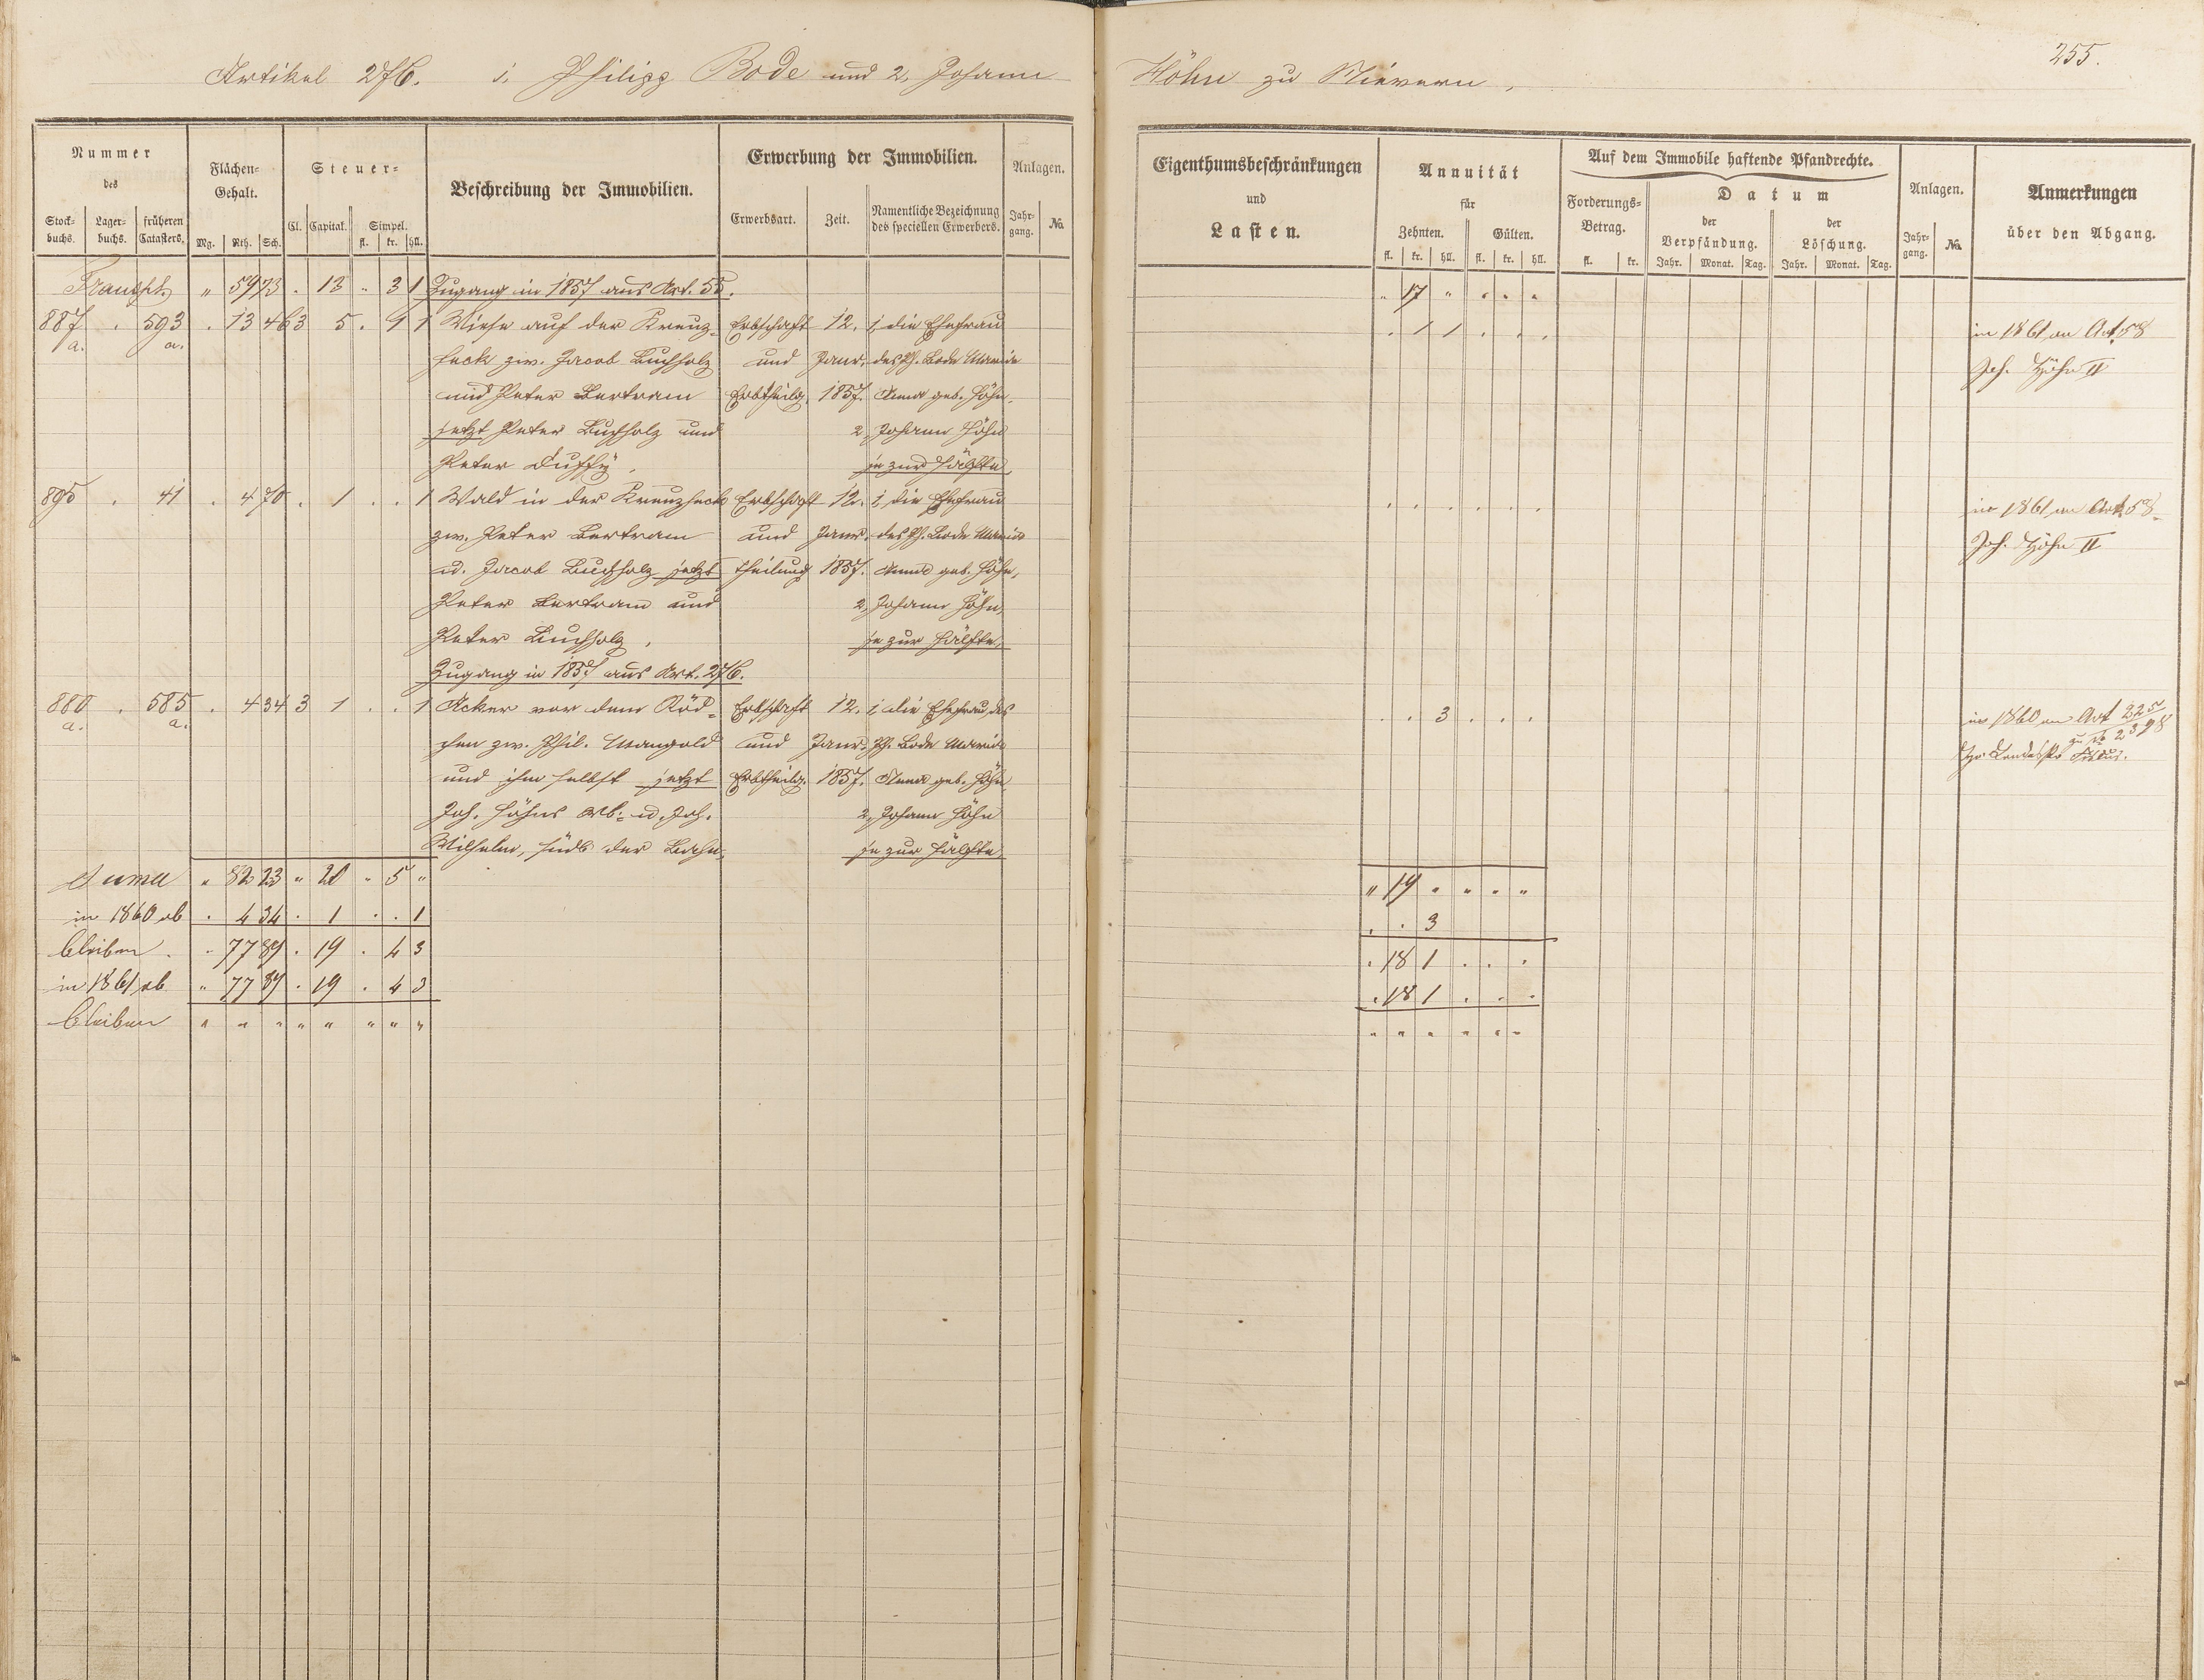 255.
Artikel 276. 1, Philipp Bode und 2, Johann Höhn zu Nievern,
Nummer des
Stock-buchs. Lager-buchs. früheren Catasters.
Flächen-Gehalt.
Mg. Rth. Sch.
Steuer-
Cl. Capital. Simpel.
fl. kr. hll.
Beschreibung der Immobilien.
Erwerbung der Immobilien.
Erwerbsart. Zeit. Namentliche Bezeichnung des speciellen Erwerbers.
Anlagen.
Jahr-gang. No.
Eigenthumsbeschränkungen
und
Lasten.
Annuität
für
Zehnten. Gülten.
fl. kr. hll. fl. kr. hll.
Auf dem Immobile haftende Pfandrechte.
Forderungs-Betrag.
fl. kr.
Datum
der Verpfändung. der Löschung.
Jahr. Monat. Tag. Jahr. Monat. Tag.
Anlagen.
Jahr-gang. No.
Anmerkungen
über den Abgang.
Transpt. " 59 73 . 13 " 3 1 Zugang in 1857 aus Art. 55. " 17 " . . .
887 . 593 . 13 46 3 5 . 1 1 Wiese auf der Kreuz- Erbschaft 12. 1, die Ehefrau . 1 1 . . . in 1861 an Art. 58
a. a. heck zw. Jacob Buchholz und Janr. des Ph. Bode Maria Joh. Höhn II
und Peter Bertram Erbtheilg. 1857. Anna geb. Höhn.
jetzt Peter Buchholz und 2, Johann Höhn
Peter Duffy. je zur Hälfte,
895 . 41 . 4 70 . 1 . . 1 Wald in der Kreuzheck Erbschaft 12. 1, die Ehefrau . . . . . . in 1861 an Art 58.
zw. Peter Bertram und Janr. des Ph. Bode Maria Joh. Höhn II
u. Jacob Buchholz jetzt theilung 1857. Anna geb. Höhn,
Peter Bertram und 2, Johann Höhn,
Peter Buchholz. je zur Hälfte,
Zugang in 1857 aus Art. 276.
880 . 585 . 4 34 3 1 . . 1 Acker vor dem Röd- Erbschaft 12. 1, die Ehefrau des . . 3 . . . in 1860 an Art 225
a. a. chen zw. Phil. Mangold und Janr. Ph. Bode Maria zu No 2398
und ihm selbst jetzt Erbtheilg. 1857. Anna geb. Höhn
Joh. Höhns Erb. u. Joh. 2, Johann Höhn
Wilhelm, südl. der Bahn, je zur Hälfte,
Suma " 82 23 " 20 " 5 " " 19 " " " "
in 1860 ab . 4 34 . 1 . . 1 . . 3
bleiben . " 77 89 . 19 . 4 3 . 18 1 . . .
in 1861 ab " 77 89 . 19 . 4 3 . 18 1 . . .
bleiben " " " " " " " " " " " " " "